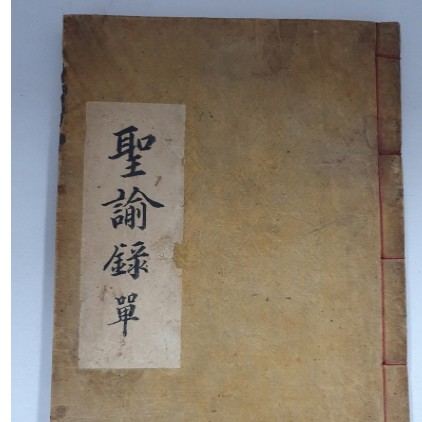 聖諭錄單